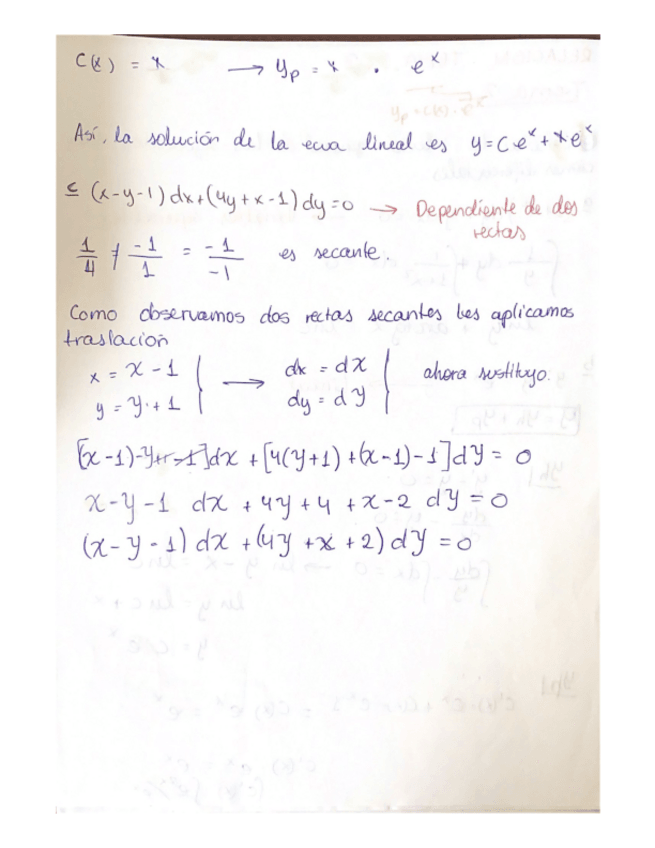 C(x) = x → yp = x · e^x
Así, la solución de la ecua lineal es y = C·e^x + xe^x
c (x-y-1)dx+(4y+x-1)dy=0 → Dependiente de dos rectas
1/4 ≠ -1/1 = -1/-1 es secante.
Como observamos dos rectas secantes les aplicamos
traslación
x = X - 1 } → dx = dX } ahora sustituyo.
y = Y + 1 } dy = dY }
[X-1)-Y+1-1]dX + [4(Y+1)+(X-1)-1]dY = 0
X-Y-1 dX + 4Y+4+X-2 dY = 0
(X-Y-1) dX + (4Y+X+2) dY = 0